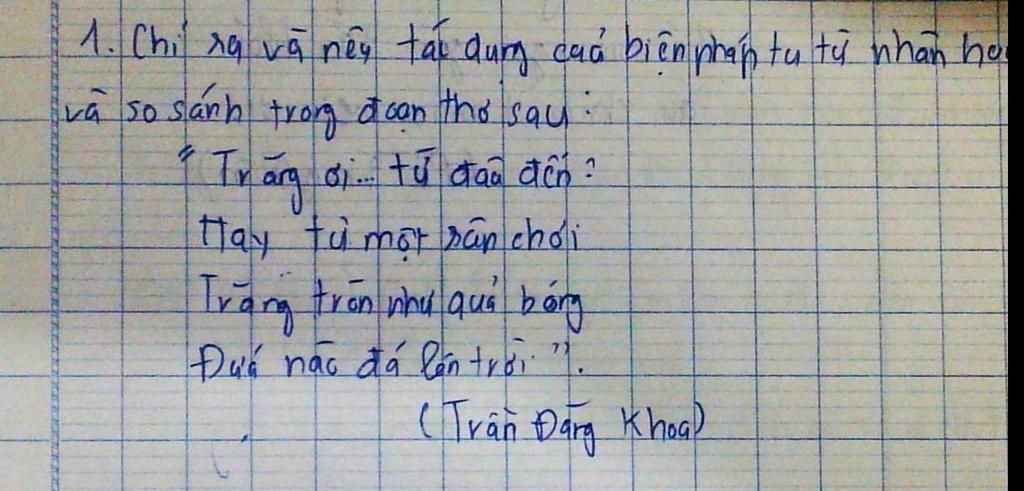 1. Chỉ ra và nêu tác dụng của biện pháp tu từ nhân ho
và so sánh trong đoạn thơ sau:
"Trăng ơi... từ đâu đến?
Hay từ một sân chơi
Trăng tròn như quả bóng
Đứa nào đá lên trời".
(Trần Đăng Khoa)